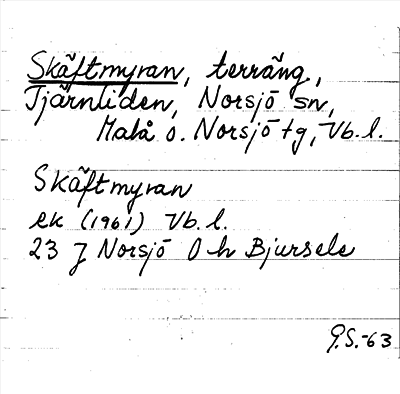 Skäftmyran, terräng,
Tjärnliden, Norsjö sn,
Malå o. Norsjö tg, Vb. l.
Skäftmyran
ek (1961) Vb. l.
23 J Norsjö 0 h Bjursele
G.S.-63